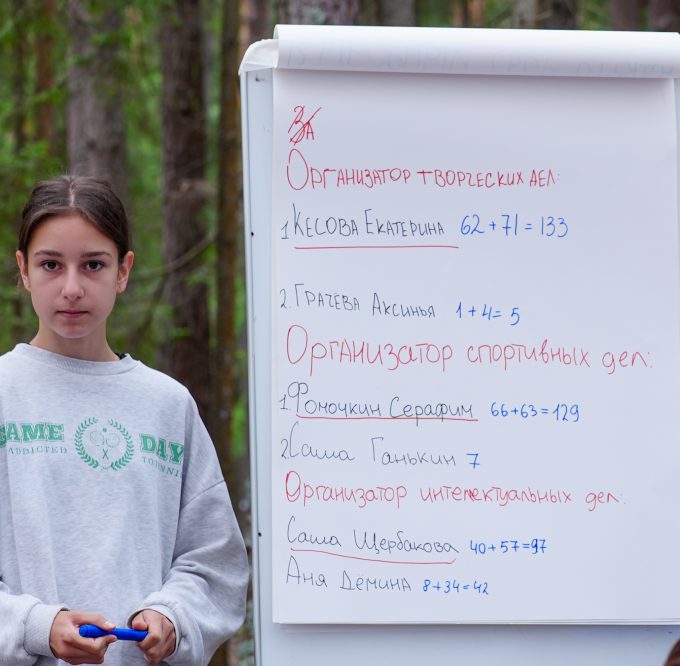 GAME DAY
ADDICTED TO TENNIS
За
Организатор творческих дел:
1. Кесова Екатерина 62+71=133
2. Грачёва Аксинья 1+4=5
Организатор спортивных дел:
1. Фомочкин Серафим 66+63=129
2 Саша Ганькин 7
Организатор интелектуальных дел:
Саша Щербакова 40+57=97
Аня Дёмина 8+34=42